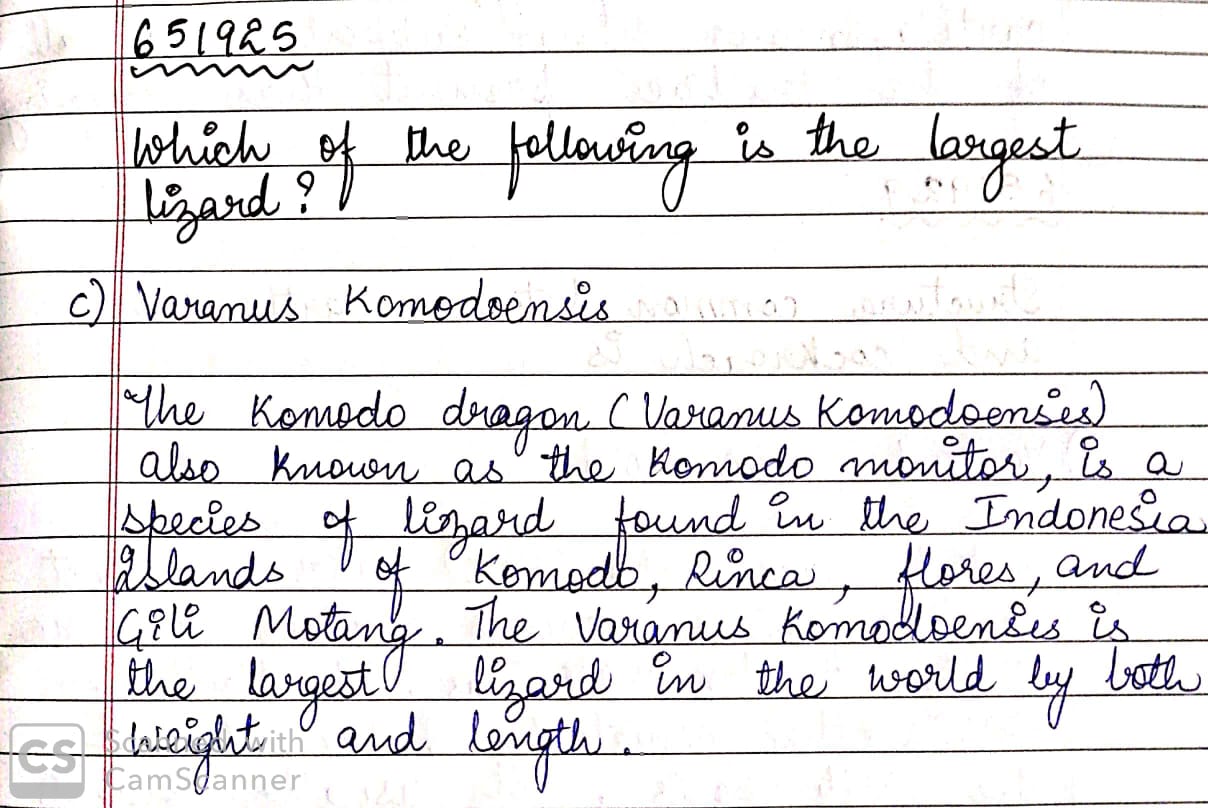 651925
Which of the following is the largest
lizard?
c) Varanus Komodoensis
The Komodo dragon (Varanus Komodoensies)
also known as the Komodo monitor, is a
species of lizard found in the Indonesia
islands of Komodo, Rinca, flores, and
Gili Motang. The Varanus Komodoensis is
the largest lizard in the world by both
weight and length.
CS Scanned with
CamScanner